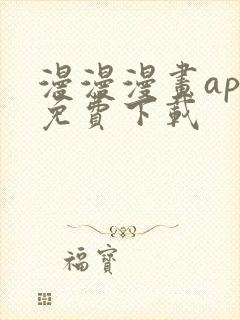 漫漫漫畫ap
免費下載
福寶